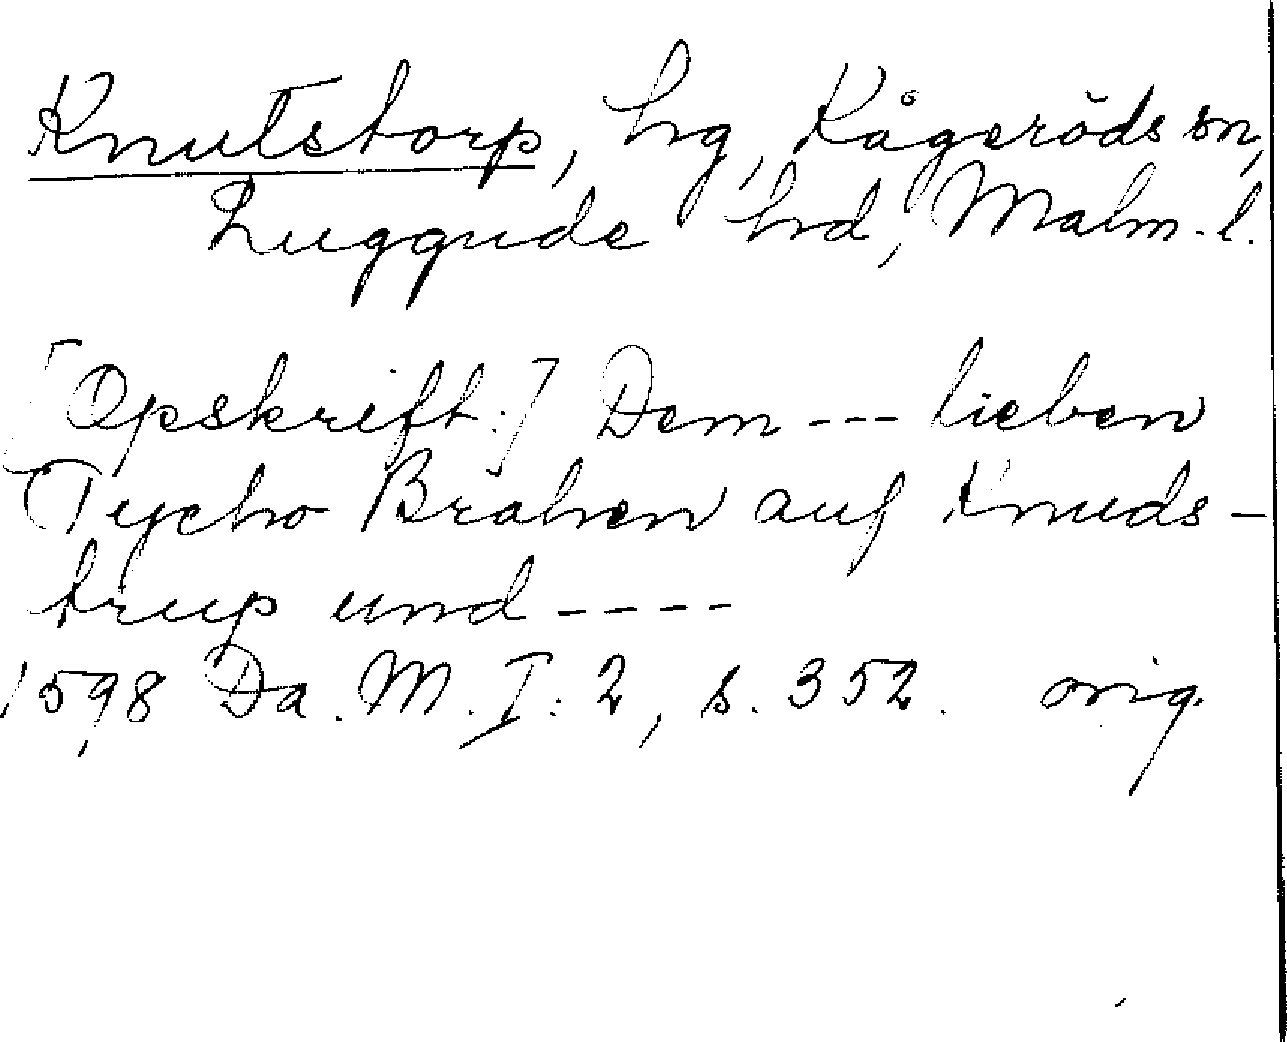 Knutstorp, hg, Kågeröds sn,
Luggude hrd, Malm. l.
[Opskrift:] Dem --- lieben
Tycho Brahen auf Knuds-
trup und ----
1598 Da. M. I: 2, s. 352. orig.